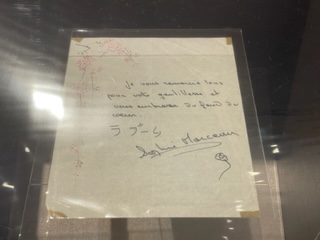 Je vous remercie tous
pour votre gentillesse et
vous embrasse du fond du
cœur.
Sophie Marceau